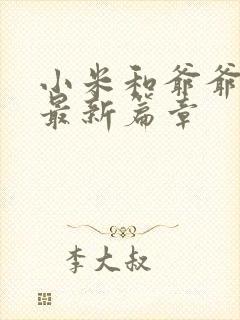 小米和爷爷
最新篇章
李大叔